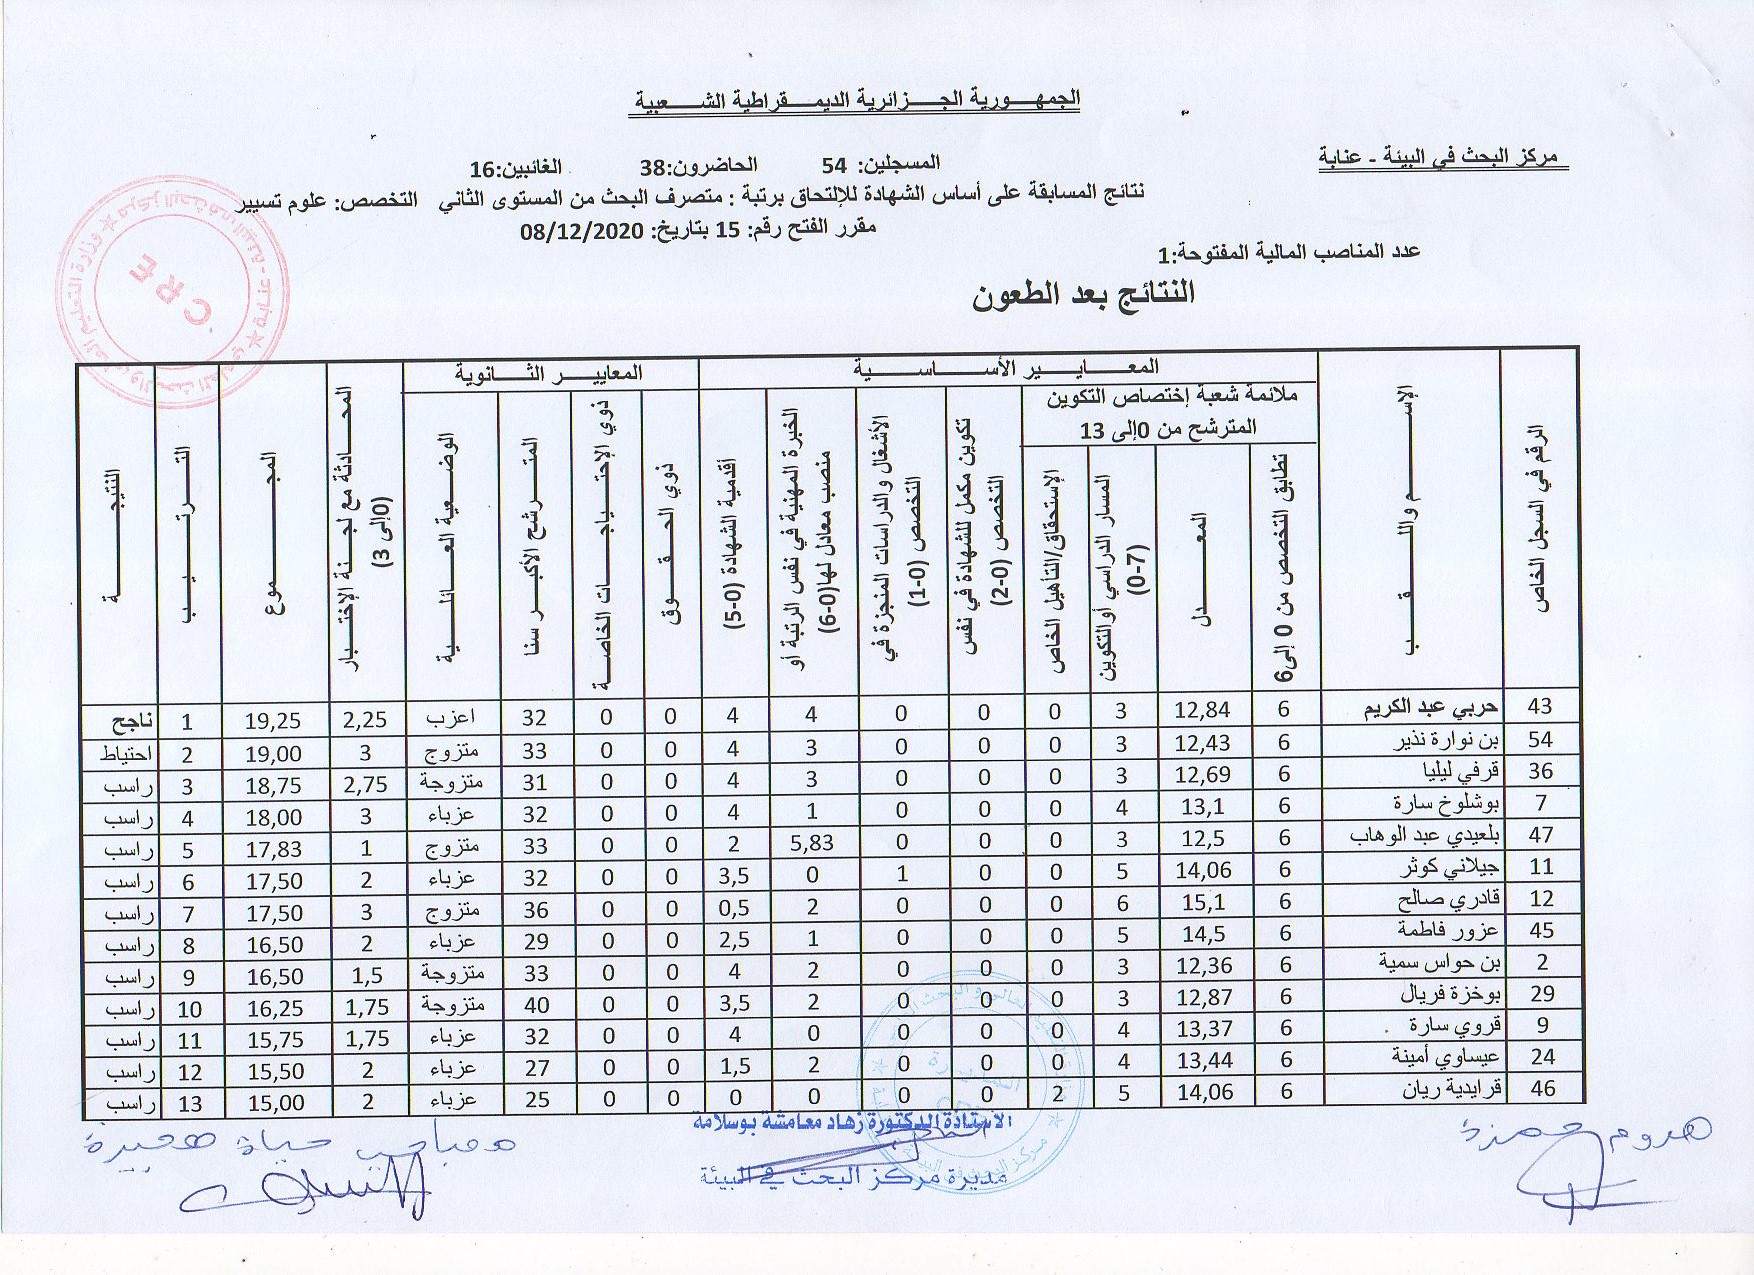 الجمهورية الجزائرية الديمقراطية الشعبية
مركز البحث في البيئة - عنابة
المسجلين: 54 الحاضرون:38 الغائبين:16
نتائج المسابقة على أساس الشهادة للإلتحاق برتبة : متصرف البحث من المستوى الثاني التخصص: علوم تسيير
مقرر الفتح رقم: 15 بتاريخ: 08/12/2020
عدد المناصب المالية المفتوحة:1
النتائج بعد الطعون
CRE
الرقم في السجل الخاص
الإسم واللقب
المعايير الأساسية
ملائمة شعبة إختصاص التكوين المترشح من 0إلى 13
تطابق التخصص من 0 إلى6
المعدل
المسار الدراسي أو التكوين (0-7)
الإستحقاق/التأهيل الخاص
تكوين مكمل للشهادة في نفس التخصص (0-2)
الأشغال والدراسات المنجزة في التخصص (0-1)
الخبرة المهنية في نفس الرتبة أو منصب معادل لها(0-6)
أقدمية الشهادة (0-5)
المعايير الثانوية
ذوي الحقوق
ذوي الإحتياجات الخاصة
المترشح الأكبر سنا
الوضعية العائلية
المحادثة مع لجنة الإختبار (0إلى 3)
المجموع
الترتيب
النتيجة
43 حربي عبد الكريم 6 12,84 3 0 0 0 4 4 0 0 32 اعزب 2,25 19,25 1 ناجح
54 بن نوارة نذير 6 12,43 3 0 0 0 3 4 0 0 33 متزوج 3 19,00 2 احتياط
36 قرفي ليليا 6 12,69 3 0 0 0 3 4 0 0 31 متزوجة 2,75 18,75 3 راسب
7 بوشلوخ سارة 6 13,1 4 0 0 0 1 4 0 0 32 عزباء 3 18,00 4 راسب
47 بلعيدي عبد الوهاب 6 12,5 3 0 0 0 5,83 2 0 0 33 متزوج 1 17,83 5 راسب
11 جيلاني كوثر 6 14,06 5 0 0 1 0 3,5 0 0 32 عزباء 2 17,50 6 راسب
12 قادري صالح 6 15,1 6 0 0 0 2 0,5 0 0 36 متزوج 3 17,50 7 راسب
45 عزور فاطمة 6 14,5 5 0 0 0 1 2,5 0 0 29 عزباء 2 16,50 8 راسب
2 بن حواس سمية 6 12,36 3 0 0 0 2 4 0 0 33 متزوجة 1,5 16,50 9 راسب
29 بوخزة فريال 6 12,87 3 0 0 0 2 3,5 0 0 40 متزوجة 1,75 16,25 10 راسب
9 قروي سارة 6 13,37 4 0 0 0 0 4 0 0 32 عزباء 1,75 15,75 11 راسب
24 عيساوي أمينة 6 13,44 4 0 0 0 2 1,5 0 0 27 عزباء 2 15,50 12 راسب
46 قرايدية ريان 6 14,06 5 2 0 0 0 0 0 0 25 عزباء 2 15,00 13 راسب
الأستاذة الدكتورة زهاد معامشة بوسلامة
مديرة مركز البحث في البيئة